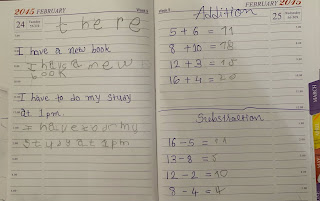 2015 FEBRUARY
24
there
I have a new book
I have a new
book
I have to do my study
at 1pm.
I have to do my
study at 1pm
FEBRUARY 2015
25
Addition
5 + 6 = 11
8 + 10 = 18
12 + 3 = 15
16 + 4 = 20
Substraction
16 - 5 = 11
13 - 8 = 5
12 - 2 = 10
8 - 4 = 4
MARCH